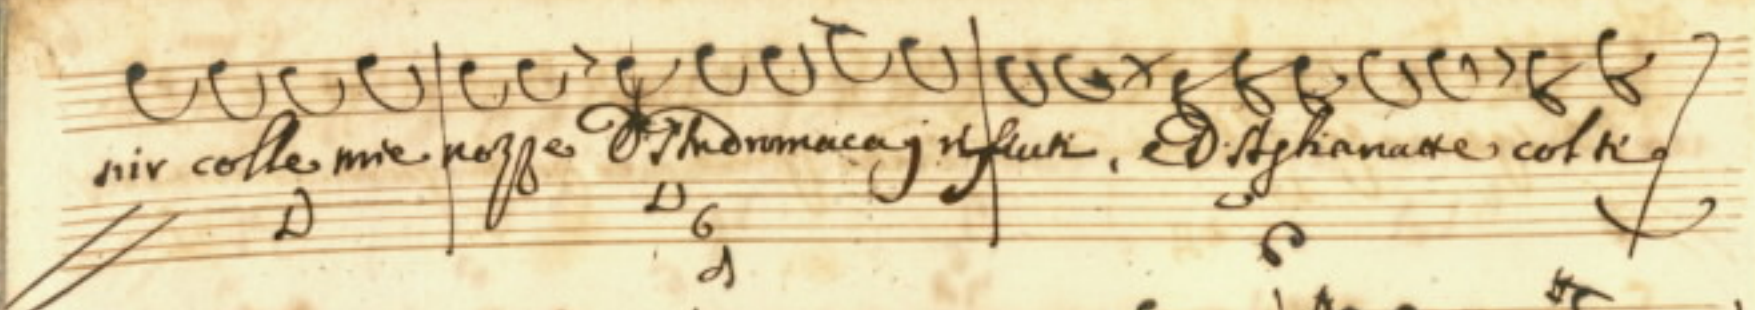 nir colle mie nozze D'Andromaca i rifiuti, E D'Astianatte col ti
6